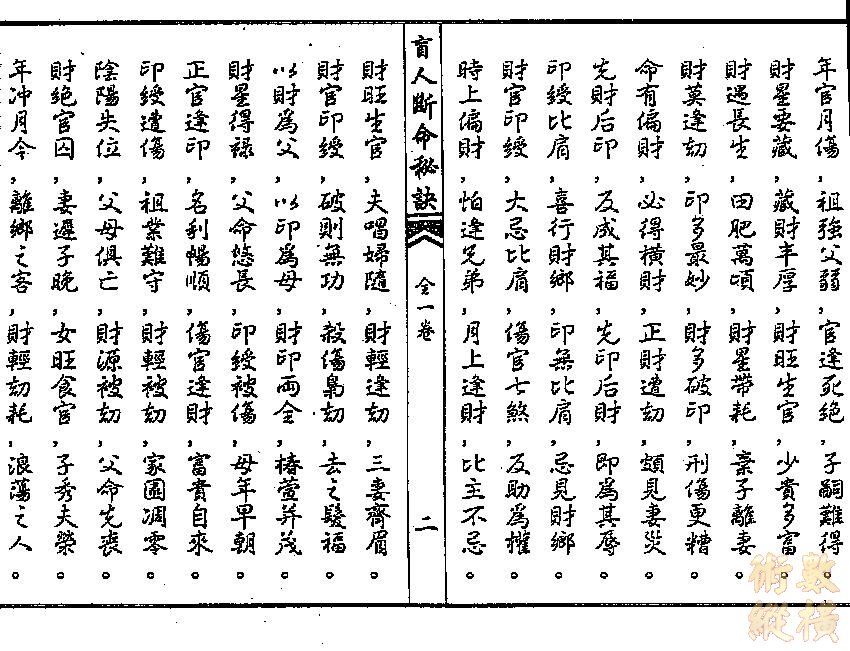 年官月傷，祖強父弱，官逢死絕，子嗣難得。
財星要藏，藏財丰厚，財旺生官，少貴多富。
財遇長生，田肥萬頃，財星帶耗，棄子離妻。
財莫逢劫，印多最妙，財多破印，刑傷更糟。
命有偏財，必得橫財，正財遭劫，頗見妻災。
先財后印，反成其福，先印后財，即為其辱。
印綬比肩，喜行財鄉，印無比肩，忌見財鄉。
財官印綬，大忌比肩，傷官七煞，反助為權。
時上偏財，怕逢兄弟，月上逢財，比主不忌。
盲人斷命秘訣
全一卷
二
財旺生官，夫唱婦隨，財輕逢劫，三妻齊眉。
財官印綬，破則無功，殺傷梟劫，去之發福。
以財為父，以印為母，財印両全，椿萱并茂。
財星得祿，父命悠長，印綬被傷，母年早朝。
正官逢印，名利暢順，傷官逢財，富貴自來。
印綬遭傷，祖業難守，財輕被劫，家園凋零。
陰陽失位，父母俱亡，財源被劫，父命先喪。
財絕官囚，妻遲子晚，女旺食官，子秀夫榮。
年冲月令，離鄉之客，財輕劫耗，浪蕩之人。
數橫
術縱